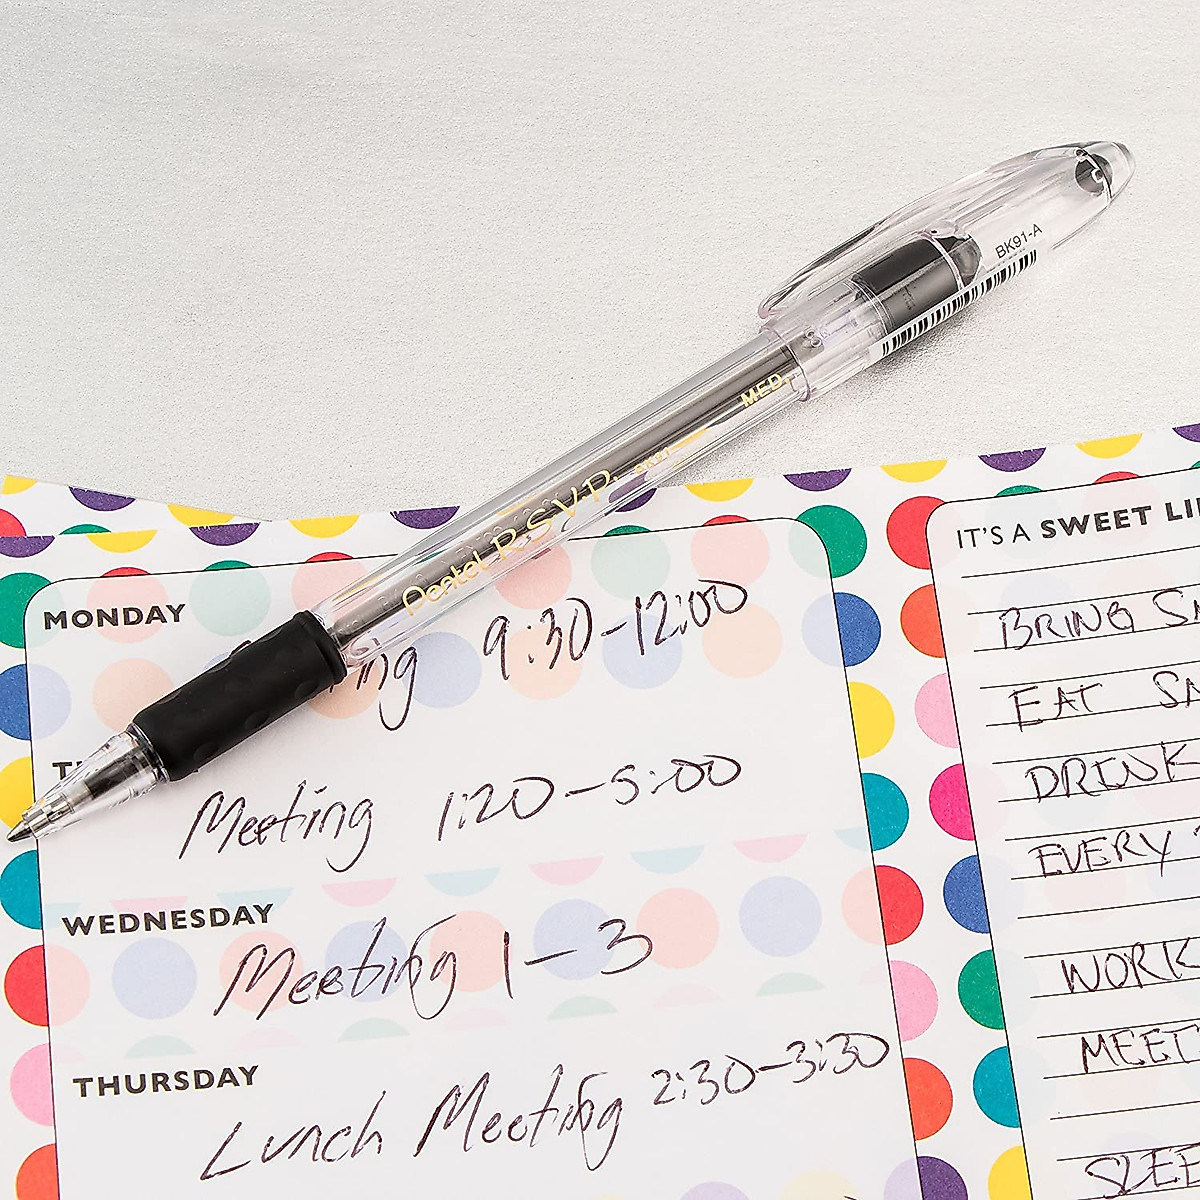 BK91-A
MED.
Pentel R.S.V.P. BK91
MONDAY
9:30-12:00
Meeting 1:20-5:00
WEDNESDAY
Meeting 1-3
THURSDAY
Lunch Meeting 2:30-3:30
IT'S A SWEET
BRING
EAT
DRINK
EVERY
WORK
SLEE